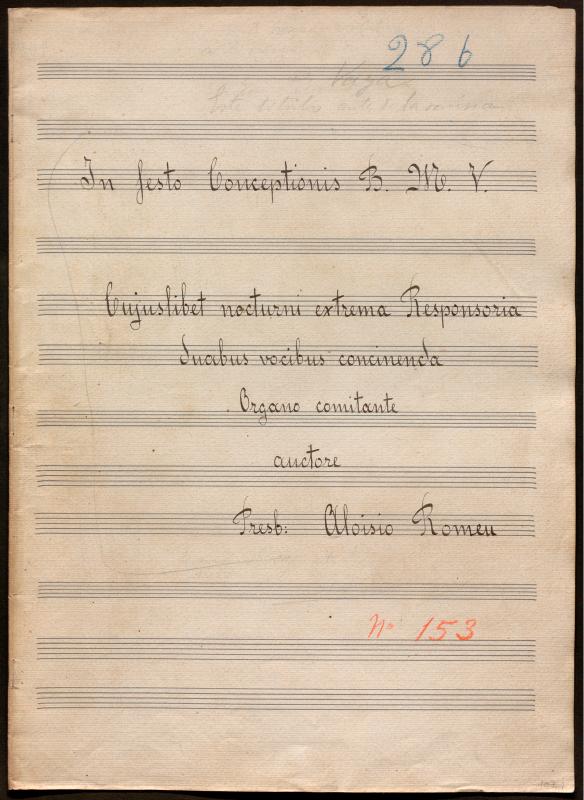 286
In festo Conceptionis B. M. V.
Cujuslibet nocturni extrema Responsoria
duabus vocibus concinenda
Organo comitante
auctore
Presb: Aloisio Romeu
Nº 153